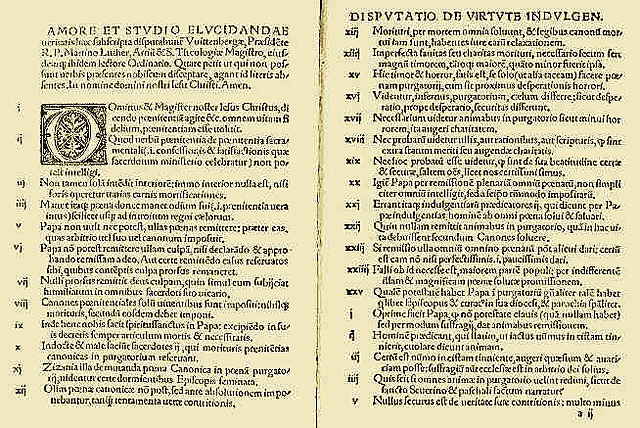 AMORE ET STVDIO ELVCIDANDAE
ueritatis hæc subscripta disputabunt Vuittenbergæ, Præsidēte
R. P. Martino Luther, Artiū & S. Theologiæ Magistro, eiusdemq;
ibidem lectore Ordinario. Quare petit ut qui non possunt
uerbis præsentes nobiscum disceptare, agant id literis absentes.
In nomine domini nostri Iesu Christi. Amen.
i DOminus & Magister noster Iesus Christus, dicendo
pœnitentiā agite &c. omnem uitam fidelium,
pœnitentiam esse uoluit.
ij Quod uerbū pœnitentia de pœnitentia sacramentali,
(i. confessionis & satisfactionis quæ
sacerdotum ministerio celebratur) non potest
intelligi.
iij Non tamen solā intēdit interiorē; immo interior nulla est, nisi
foris operetur uarias carnis mortificationes.
iiij Manet itaq; pœna donec manet odium sui, (.i. pœnitentia uera
intus) scilicet usq; ad introitum regni cælorum.
v Papa non uult nec potest, ullas pœnas remittere; præter eas,
quas arbitrio uel suo uel canonum imposuit.
vj Papa nō potest remittere ullam culpā, nisi declarādo & approbando
remissam a deo, Aut certe remittēdo casus reseruatos
sibi, quibus cōtēptis culpa prorsus remaneret.
vij Nulli prorsus remittit deus culpam, quin simul eum subijciat
humiliatum in omnibus sacerdoti suo uicario.
viij Canones pœnitentiales solū uiuentibus sunt impositi; nihilq;
morituris, secundū eosdem debet imponi.
ix Inde bene nobis facit spiritussanctus in Papa; excipiēdo in suis
decretis semper articulum mortis & necessitatis.
x Indocte & male faciūt sacerdotes ij, qui morituris pœnitētias
canonicas in purgatorium reseruant.
xj Zizania illa de mutanda pœna Canonica in pœnā purgatorij,
uidentur certe dormientibus Episcopis seminata.
xij Olim pœnæ canonicæ nō post, sed ante absolutionem imponebantur,
tanq̄ tentamenta ueræ contritionis.
DISPVTATIO DE VIRTVTE INDVLGEN.
xiij Morituri, per mortem omnia soluunt, & legibus canonū mortui
iam sunt, habentes iure earū relaxationem.
xiiij Imperfecta sanitas seu charitas morituri, necessario secum fert
magnū timorem, tātoq; maiorē, quāto minor fuerit ipsa.
xv Hic timor & horror, satis est, se solo (ut alia taceam) facere pœnam
purgatorij, cum sit proximus desperationis horrori.
xvj Videntur, infernus, purgatorium, cælum differre; sicut desperatio,
prope desperatio, securitas differunt.
xvij Necessarium uidetur animabus in purgatorio sicut minui horrorem,
ita augeri charitatem.
xviij Nec probatū uidetur ullis, aut rationibus, aut scripturis, q̄ sint
extra statum meriti seu augendæ charitatis.
xix Nec hoc probatū esse uidetur, q̄ sint de sua beatitudine certæ
& securæ, saltem oēs, licet nos certissimi simus.
xx Igit̄ Papa per remissionē plenariā omniū pœnarū, non simpliciter
omniū intelligit, sed a seipo tāmodo impositarū.
xxj Errant itaq; indulgentiarū prædicatores ij, qui dicunt per Papæ
indulgentias, hominē ab omni pœna solui & saluari.
xxij Quin nullam remittit animabus in purgatorio, quā in hac uita
debuissent secundum Canones soluere.
xxiij Si remissio ulla omniū omnino pœnarū pōt alicui dari; certū
est eam nō nisi perfectissimis .i. paucissimis dari.
xxiiij Falli ob id necesse est, maiorem partē populi; per indifferentē
illam & magnificam pœnæ solutæ promissionem.
xxv Qualē potestatē habet Papa ī purgatoriū gn̄aliter talē habet
q̄libet Episcopus & curat⁹ in sua diœcesi, & parochia sp̄āliter.
i Optime facit Papa, q̄ nō potestate clauis (quā nullam habet)
sed per modum suffragij, dat animabus remissionem.
ij Hominē prædicant, qui statim, ut iactus nūmus in cistam tinnierit,
euolare dicunt animam.
iij Certū est nūmo in cistam tinniente, augeri quæstum & auaritiam
posse; suffragiū aūt ecclesiæ est in arbitrio dei solius.
iiij Quis scit si omnes animæ in purgatorio uelint redimi, sicut de
sancto Seuerino & paschali factum narratur.
v Nullus securus est de ueritate suæ contritionis; multo minus
a ij